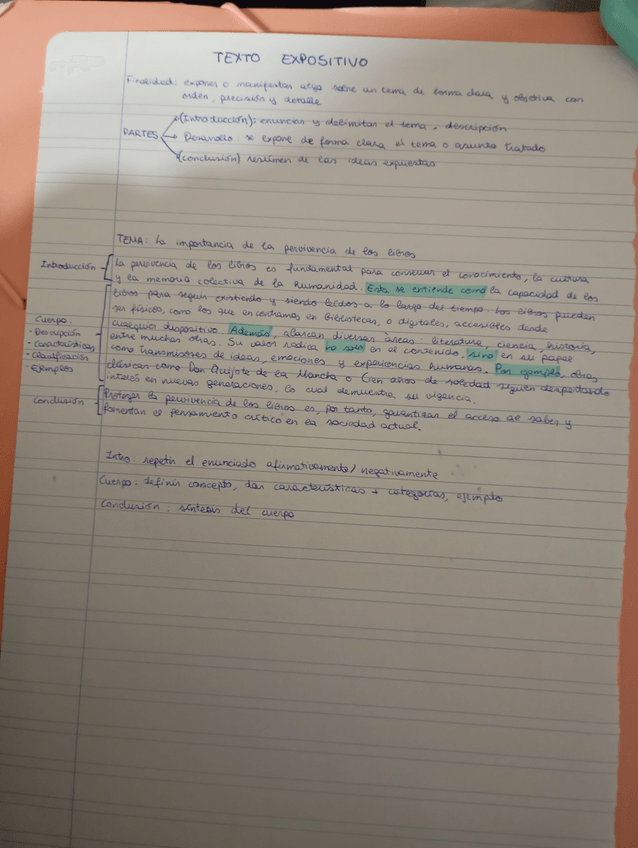 TEXTO EXPOSITIVO
Finalidad: exponer o manifestar algo sobre un tema de forma clara y objetiva con
orden, precisión y detalle
(Introducción): enunciar y delimitar el tema. descripción
PARTES → Desarrollo: se expone de forma clara el tema o asunto tratado
(conclusión) resumen de las ideas expuestas
TEMA: La importancia de la pervivencia de los libros
Introducción - La pervivencia de los libros es fundamental para conservar el conocimiento, la cultura
y la memoria colectiva de la humanidad. Esta se entiende como la capacidad de los
libros para seguir existiendo y siendo leídos a lo largo del tiempo. Los libros pueden
ser físicos, como los que encontramos en bibliotecas, o digitales, accesibles desde
Cuerpo:
- Descripción
- Características
- Clasificación
- Ejemplos
cualquier dispositivo. Además, abarcan diversas áreas: literatura, ciencia, historia,
entre muchas otras. Su valor radica no solo en el contenido, sino en su papel
como transmisores de ideas, emociones y experiencias humanas. Por ejemplo, obras
clásicas como Don Quijote de la Mancha o Cien años de soledad siguen despertando
interés en nuevas generaciones, lo cual demuestra su vigencia.
Conclusión - Proteger la pervivencia de los libros es, por tanto, garantizar el acceso al saber y
fomentar el pensamiento crítico en la sociedad actual.
Intro: repetir el enunciado afirmativamente/negativamente
Cuerpo: definir concepto, dar características + categorías, ejemplo
Conclusión: síntesis del cuerpo